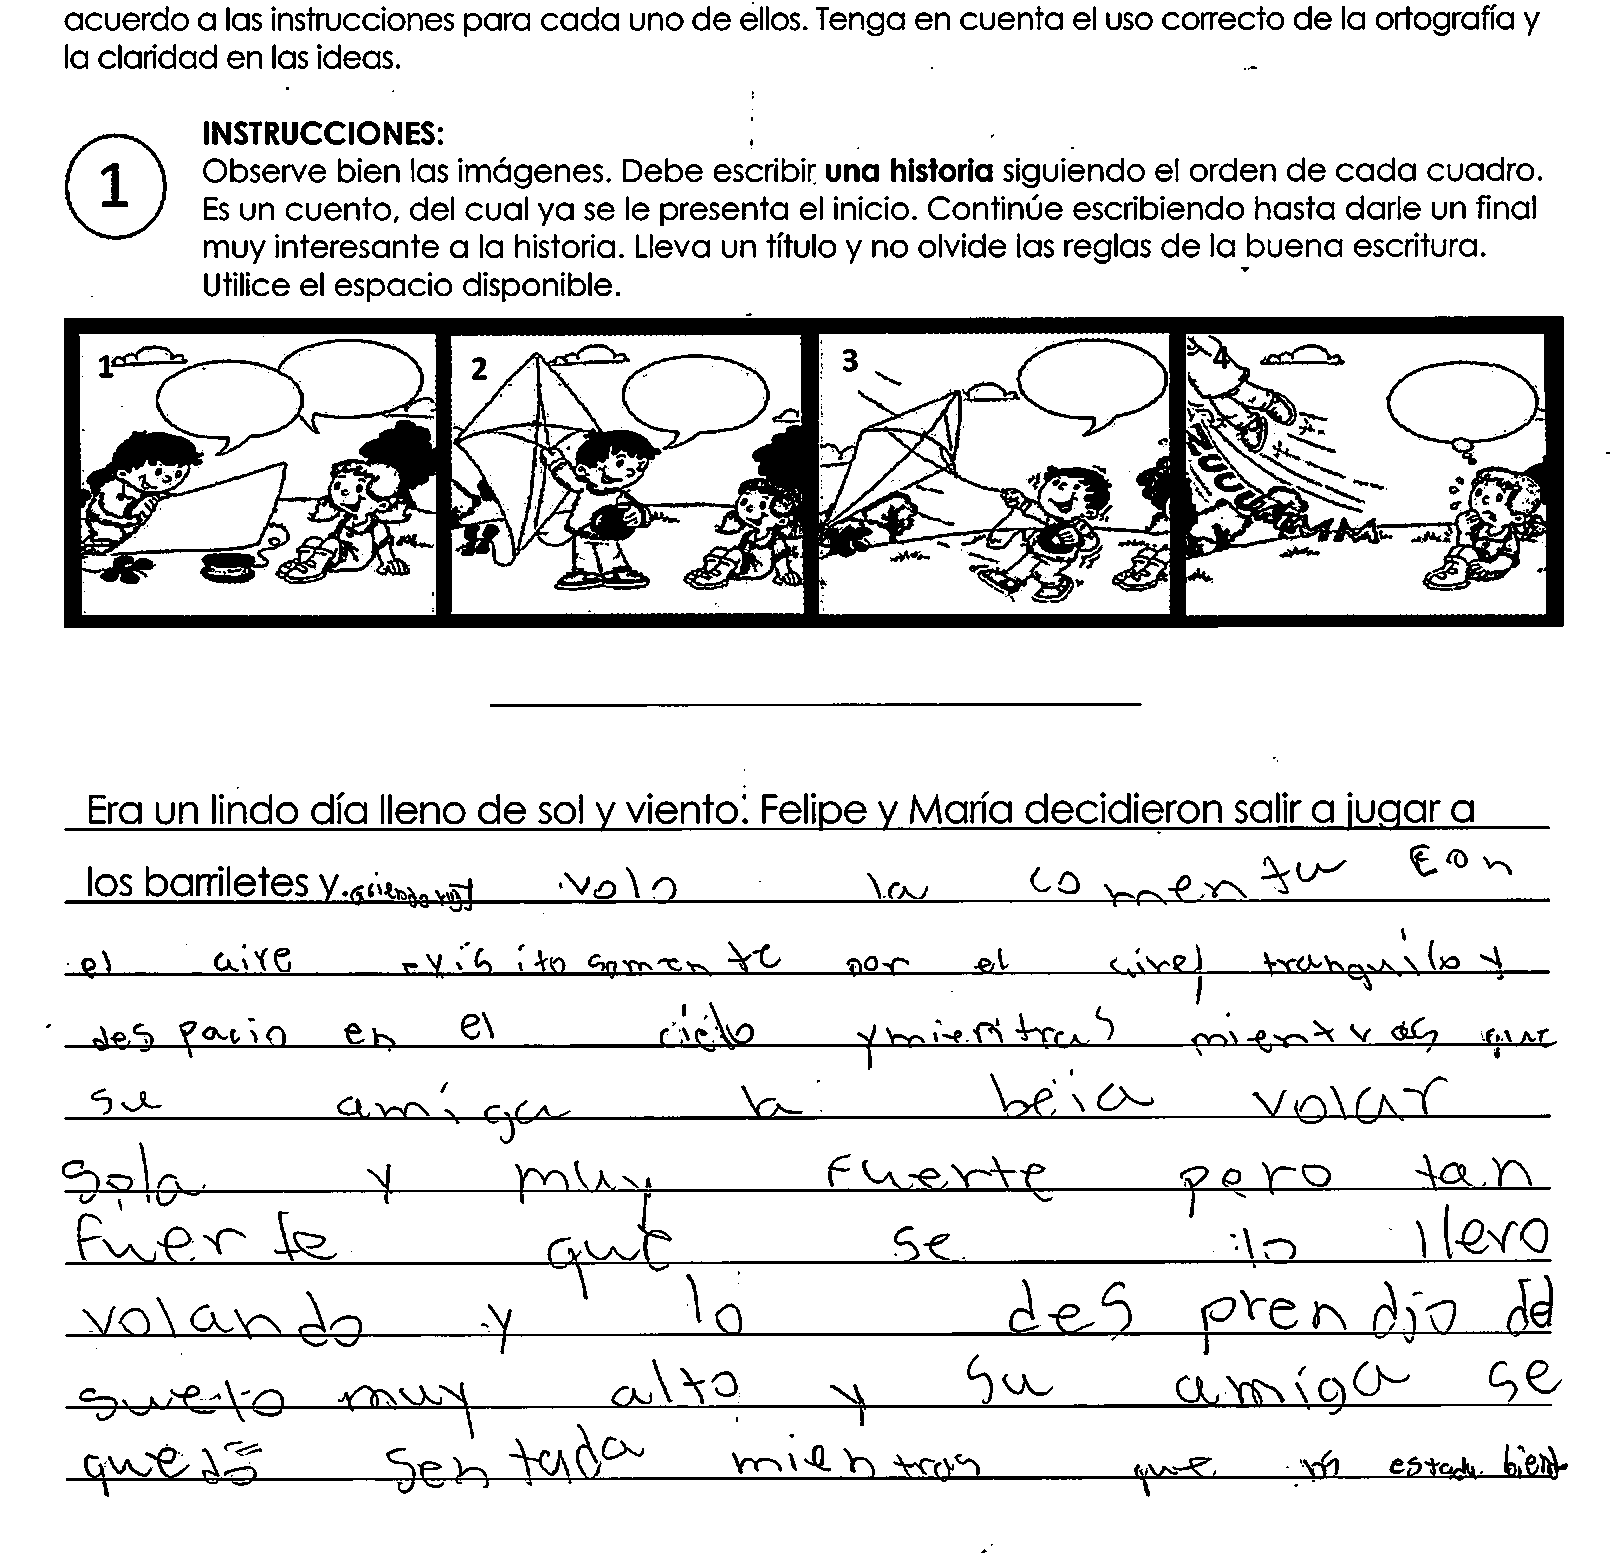 acuerdo a las instrucciones para cada uno de ellos. Tenga en cuenta el uso correcto de la ortografía y
la claridad en las ideas.
1
INSTRUCCIONES:
Observe bien las imágenes. Debe escribir una historia siguiendo el orden de cada cuadro.
Es un cuento, del cual ya se le presenta el inicio. Continúe escribiendo hasta darle un final
muy interesante a la historia. Lleva un título y no olvide las reglas de la buena escritura.
Utilice el espacio disponible.
1 2 3 4
ZUUUUMMM
Era un lindo día lleno de sol y viento. Felipe y María decidieron salir a jugar a
los barriletes y volo la comenta con
el aire exisitosamente por el aire, tranquilo y
des pacio en el cielo y mientras mientras que
su amiga la beia volar
sola y muy fuerte pero tan
fuerte que se lo llevo
volando y lo des prendio del
suelo muy alto y su amiga se
quedo sentada mientras que estadu